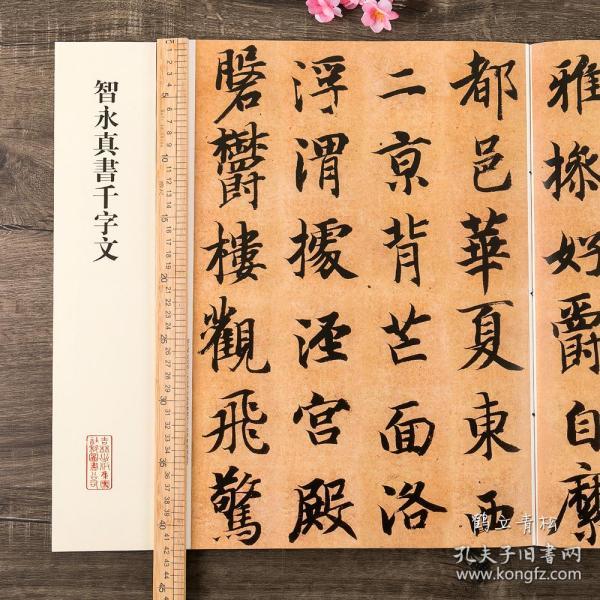 雅操好爵自縻
都邑華夏東西
二亰背芒面洛
浮渭據涇宫殿
磐鬱樓觀飛驚
智永真書千字文
鹤立青松
孔夫子旧书网
www.kongfz.com